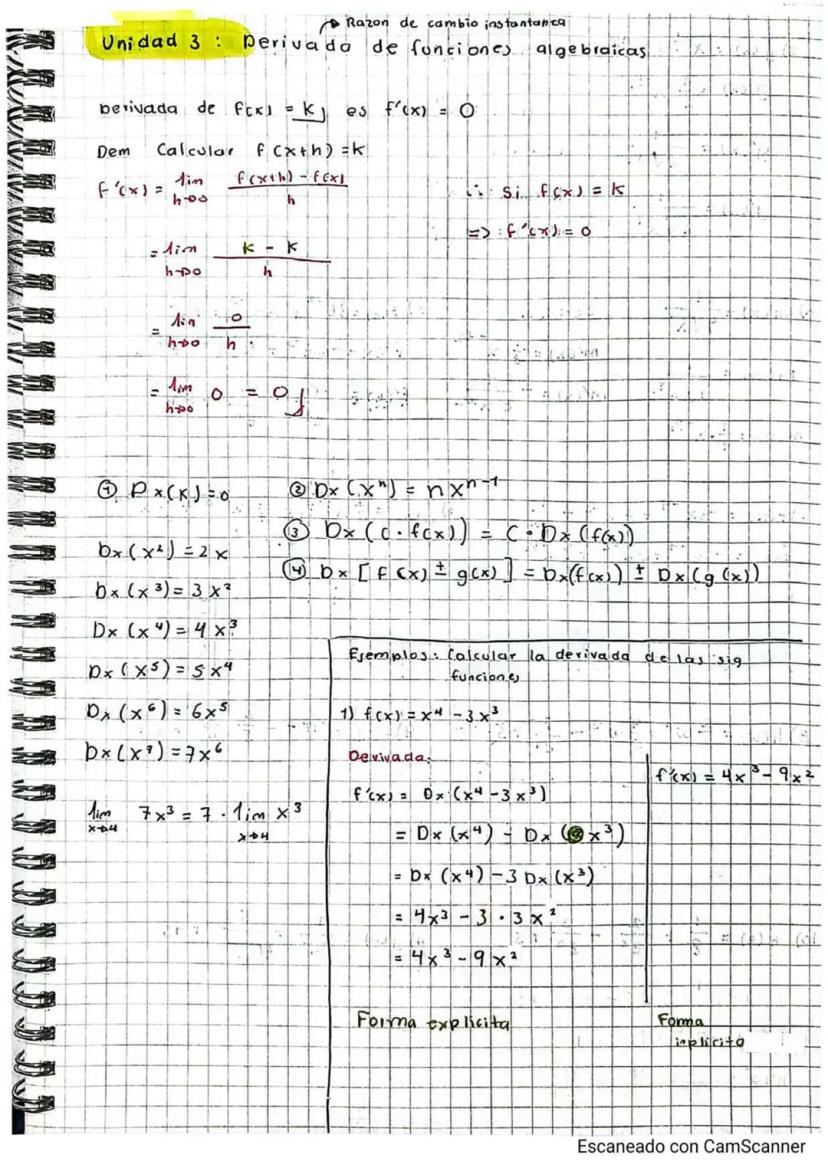 Razon de cambio instantanea
Unidad 3 : Derivada de funciones algebraicas
Derivada de f(x) = k, es f'(x) = 0
Dem Calcular f(x+h) = k
f'(x) = lim h→0 f(x+h) - f(x) / h
= lim h→0 k - k / h
= lim h→0 0 / h
= lim h→0 0 = 0
∴ Si f(x) = k
=> f'(x) = 0
① Dx(k) = 0
② Dx(xⁿ) = nxⁿ⁻¹
③ Dx(c·f(x)) = C·Dx(f(x))
④ Dx[f(x) ± g(x)] = Dx(f(x)) ± Dx(g(x))
Dx(x²) = 2x
Dx(x³) = 3x²
Dx(x⁴) = 4x³
Dx(x⁵) = 5x⁴
Dx(x⁶) = 6x⁵
Dx(x⁷) = 7x⁶
lim x→4 7x³ = 7 · lim x→4 x³
Ejemplos: Calcular la derivada de las sig
funciones
1) f(x) = x⁴ - 3x³
Derivada:
f'(x) = Dx(x⁴ - 3x³)
= Dx(x⁴) - Dx(3x³)
= Dx(x⁴) - 3Dx(x³)
= 4x³ - 3 · 3x²
= 4x³ - 9x²
Forma explicita
f'(x) = 4x³ - 9x²
Forma
inplicita
Escaneado con CamScanner